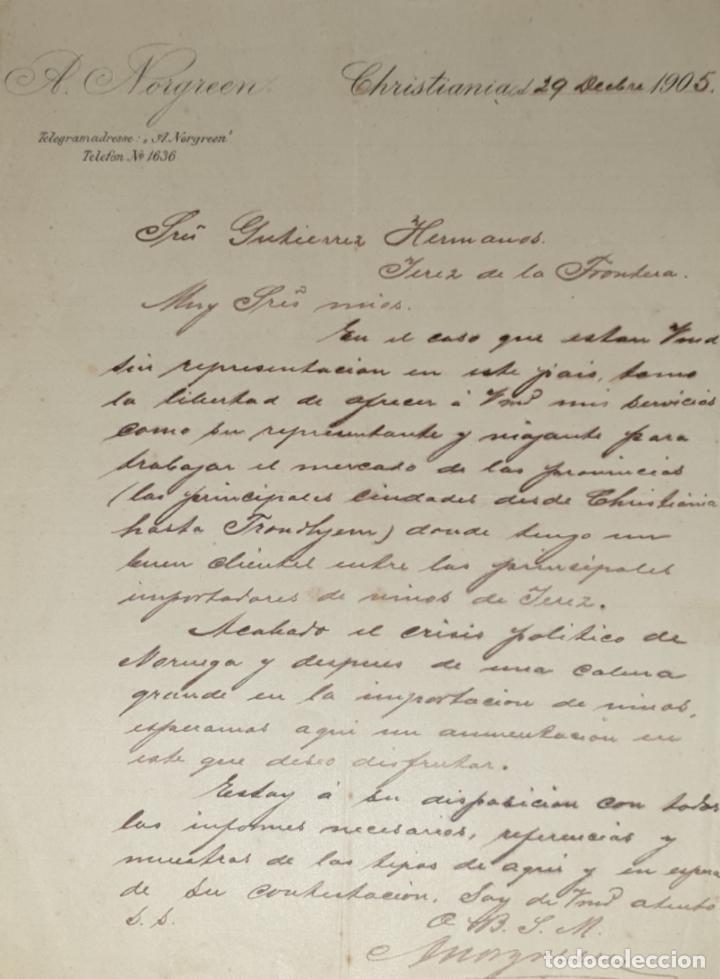 A. Norgreen
Christiania, d. 29 Decbre 1905.
Telegramadresse: "A. Norgreen"
Telefon No 1636
Sres Gutierrez Hermanos.
Jerez de la Frontera.
Muy Sres mios.
En el caso que estan Vmd
sin representacion en este pais, tomo
la libertad de ofrecer á Vmd mis servicios
como su representante y viajante para
trabajar el mercado de las provincias
(las principales ciudades desde Christiania
hasta Trondhjem) donde tengo un
buen clientel entre los principales
importadores de vinos de Jerez.
Acabado el crisis politico de
Noruega y despues de una calma
grande en la importacion de vinos,
esperamos aqui un aumentacion en
este que deseo disfrutar.
Estoy á su disposicion con todos
los informes necesarios, referencias y
muestras de los tipos de aqui y en espera
de su contestacion, Soy de Vmd atento
S. S.
Q. B. S. M.
ANorgreen
todocoleccion